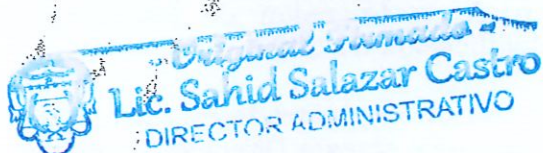 - Original Firmado -
Lic. Sahid Salazar Castro
DIRECTOR ADMINISTRATIVO